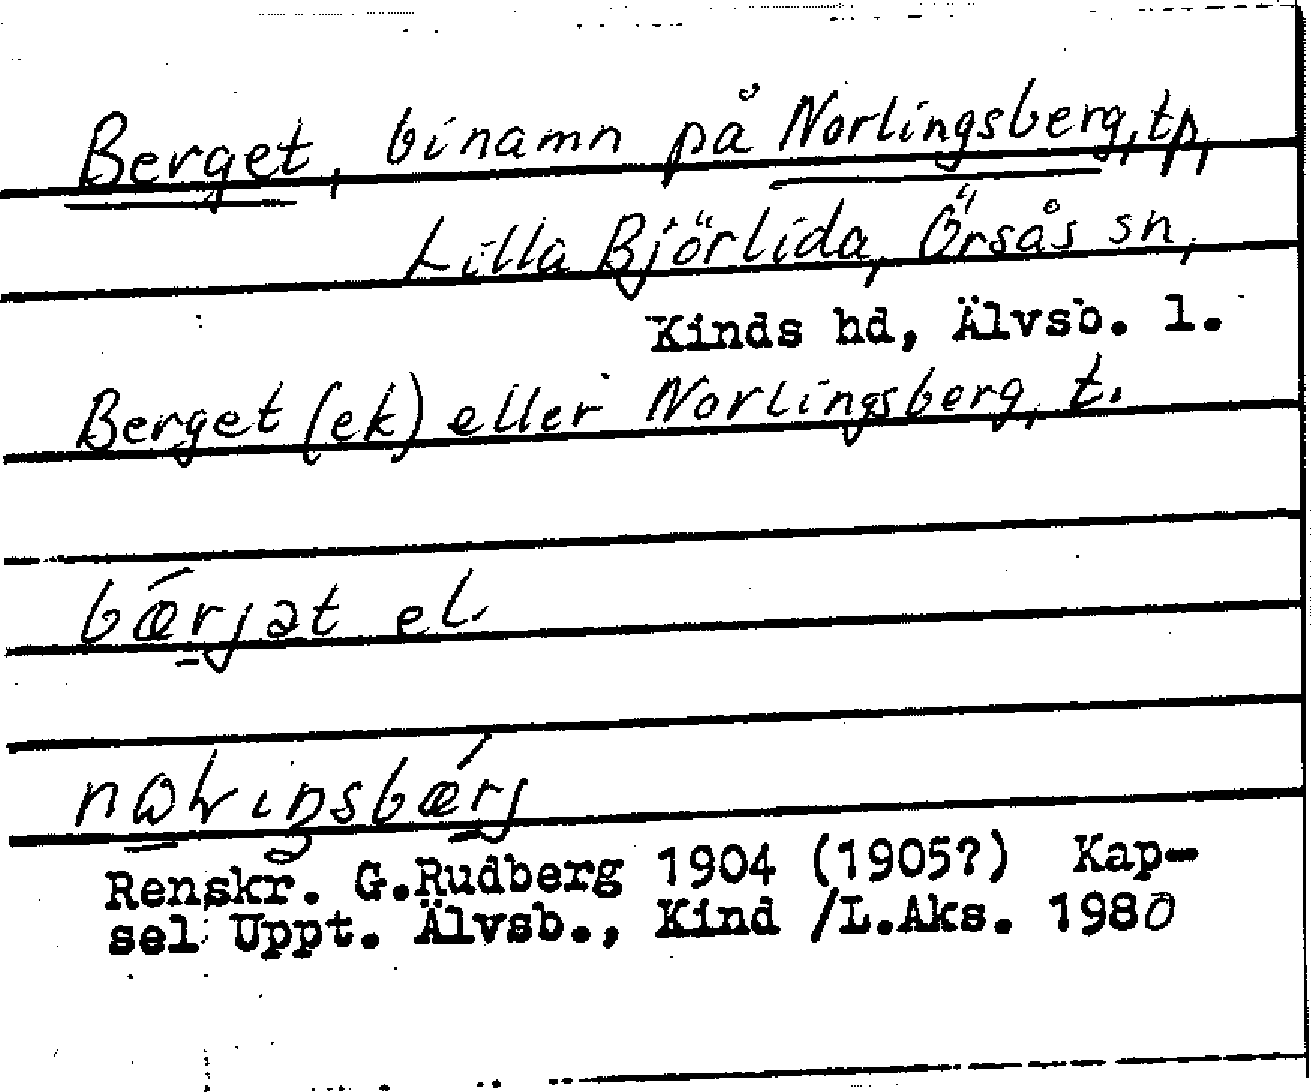 Berget, binamn på Norlingsberg, tp,
Lilla Björlida, Örsås sn,
Kinds hd, Älvsb. l.
Berget (ek) eller Norlingsberg, t.
bærjət el
Renskr. G.Rudberg 1904 (1905?) Kap-
sel Uppt. Älvsb., Kind /L.Aks. 1980